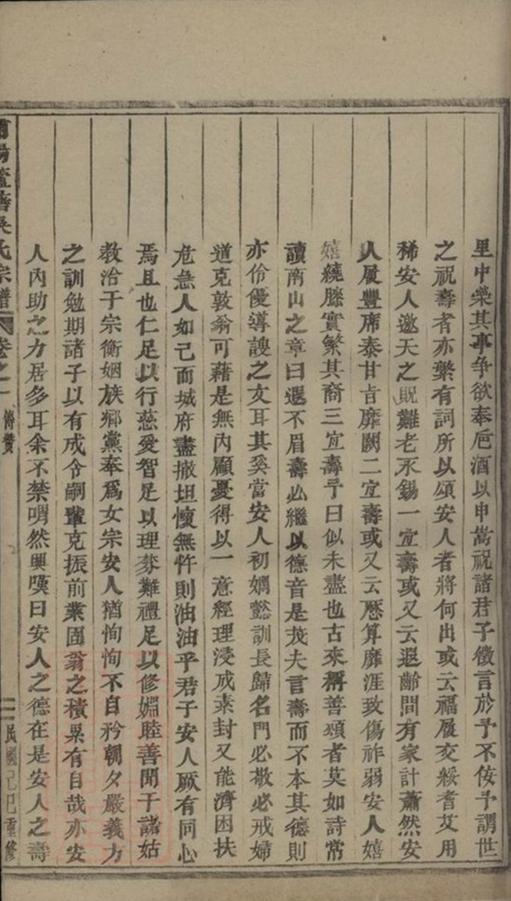 里中樂其事争欲奉巵酒以申嵩祝諸君子徵言於予不佞予謂世
之祝壽者亦樂有詞所以頌安人者將何出或云福履交綏耆艾用
稀安人邀天之貺難老永錫一宜壽或又云遐齡間有家計蕭然安
人履豐席泰甘旨靡闕二宜壽或又云厯算靡涯致傷祚弱安人嬉
嬉繞膝實繁其裔三宜壽予曰似未盡也古來稱善頌者莫如詩常
讀南山之章曰遐不眉壽必繼以德音是茂夫言壽而不本其德則
亦伶優導諛之文耳其奚當安人初嫻懿訓長歸名門必敬必戒婦
道克敦翁可藉是無內顧憂得以一意經理浸成素封又能濟困扶
危急人如己而城府盡撤坦懷無忤則油油乎君子安人厥有同心
焉且也仁足以行慈愛智足以理棼難禮足以修婣睦善聞于諸姑
教洽于宗衡姻族鄉黨奉爲女宗安人猶恂恂不自矜朝夕嚴義方
之訓勉期諸子以有成令嗣輩克振前業固翁之積累有自哉亦安
人內助之力居多耳余不禁喟然興嘆曰安人之德在是安人之壽
吳氏宗譜 卷之一 傳贊 二 民國己巳重修